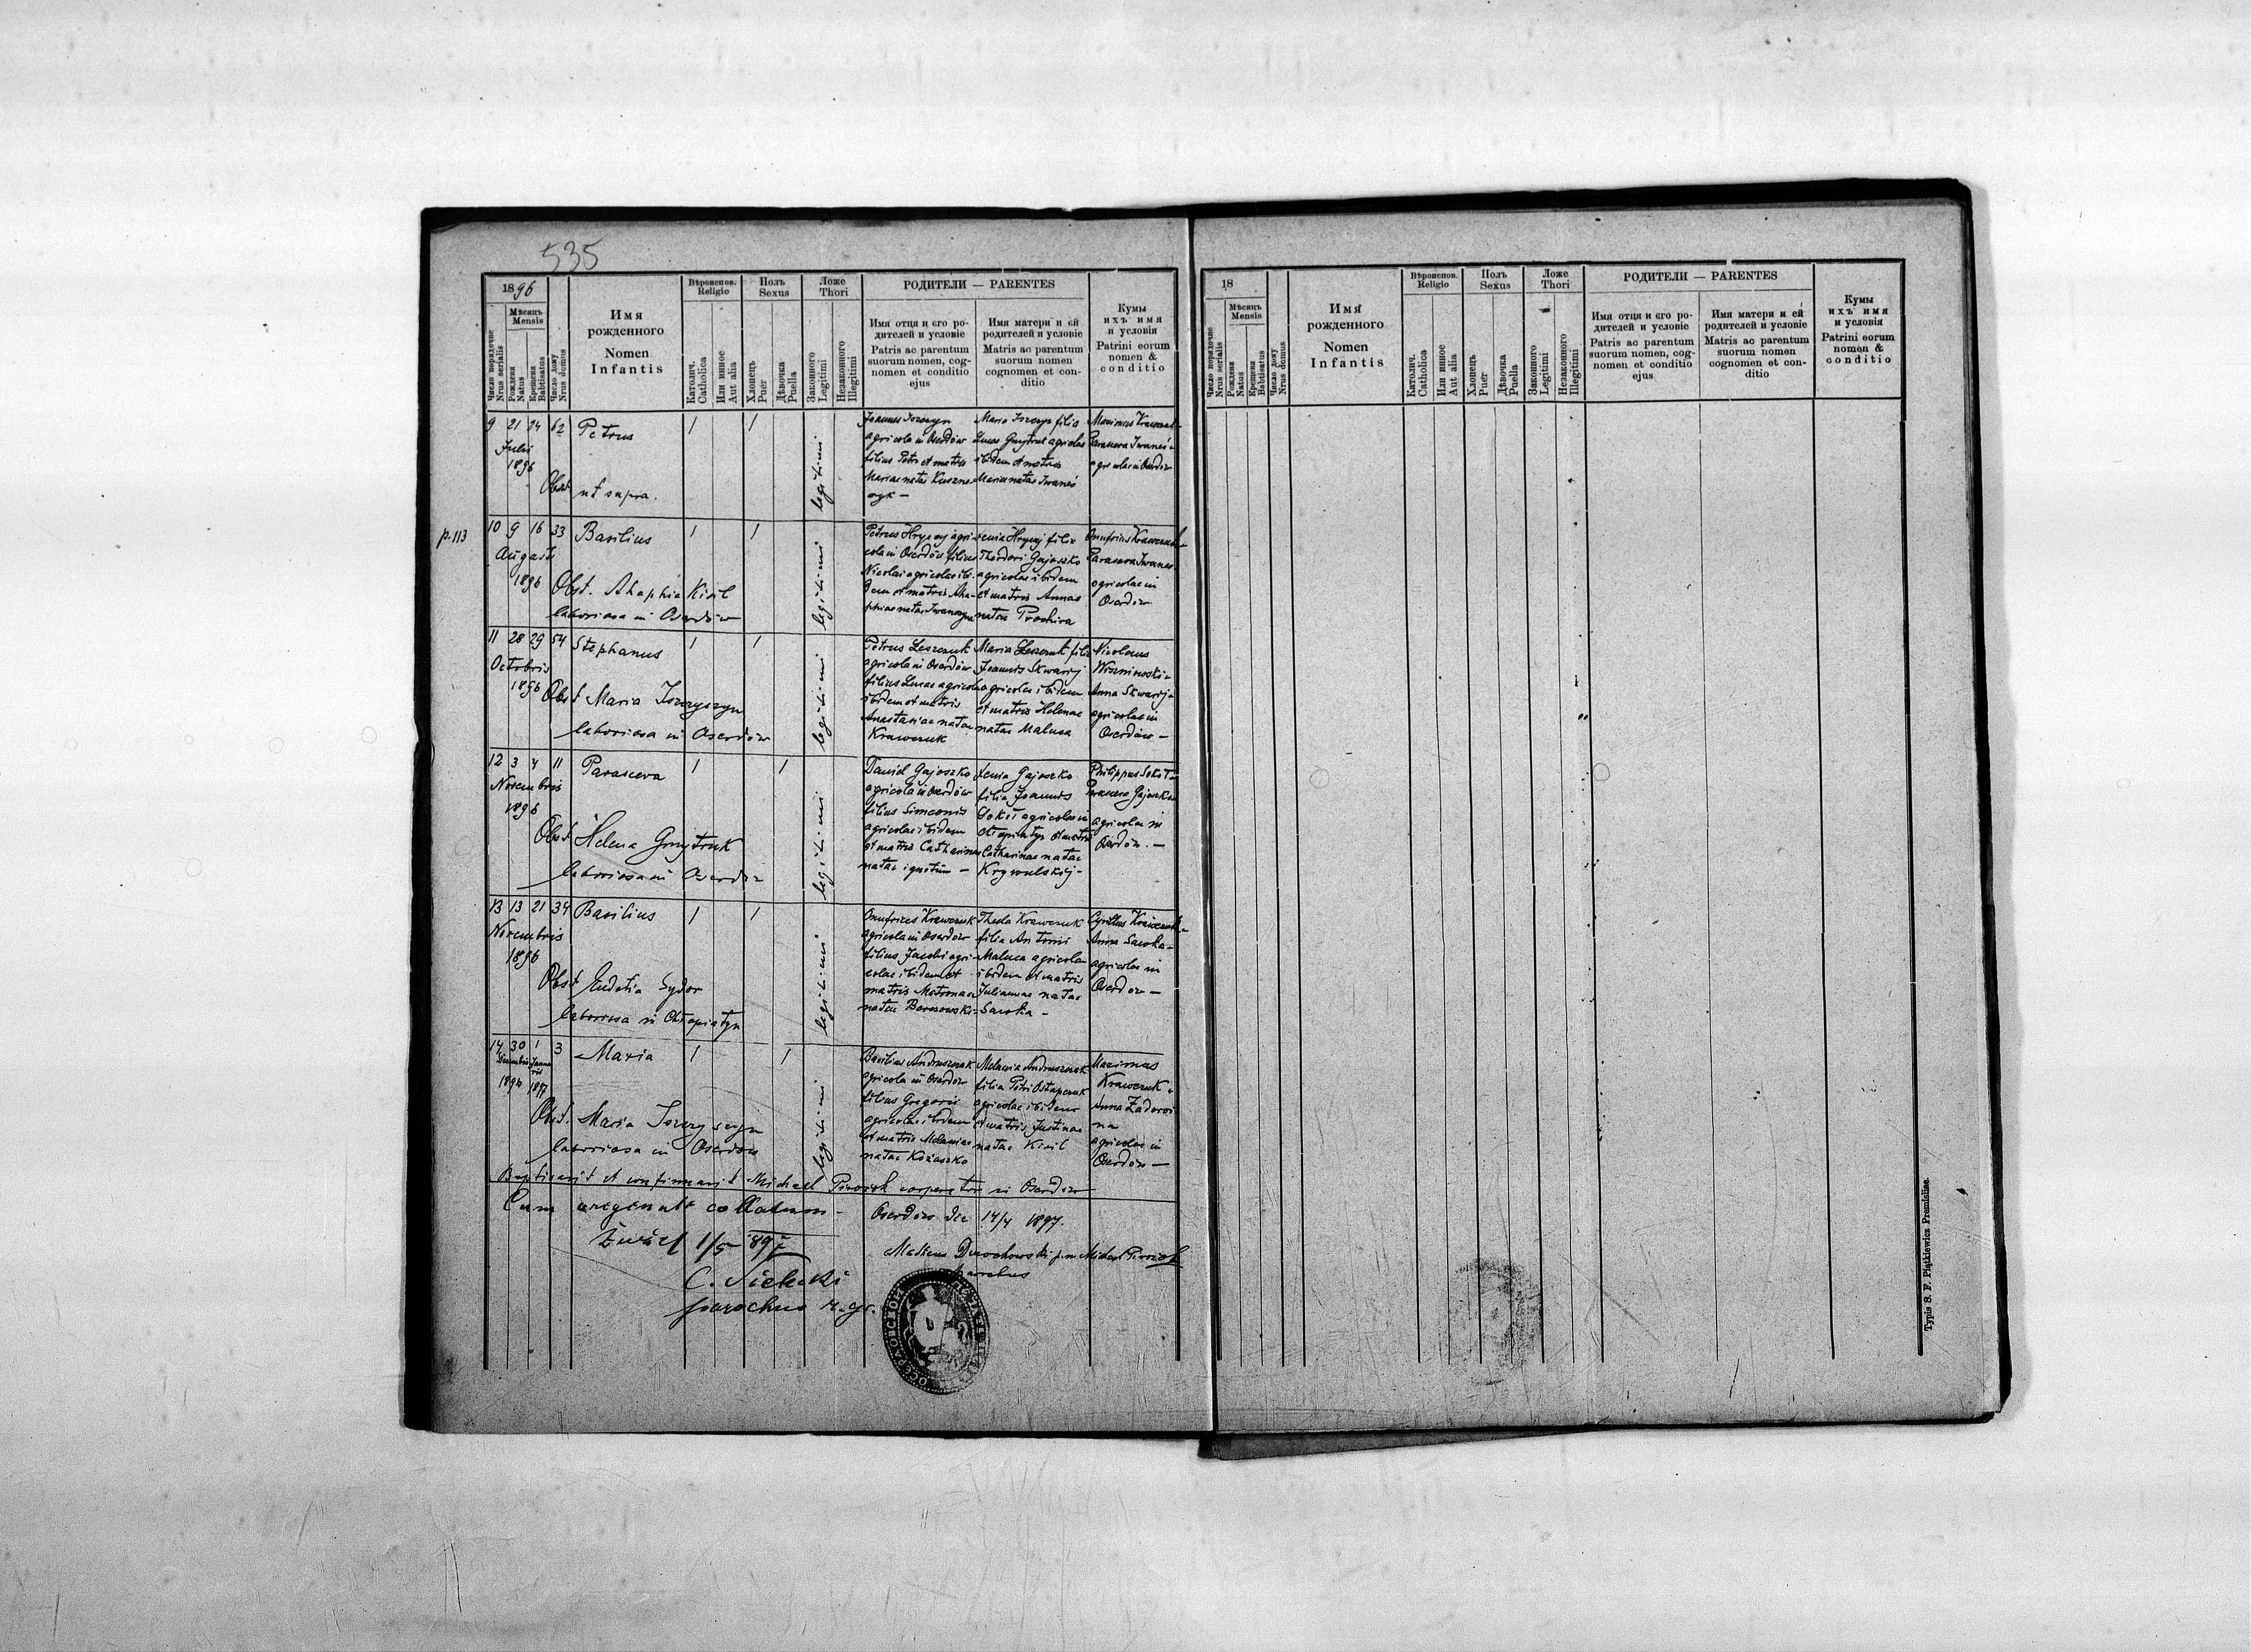 535
1896
Число порядочне
Nrus serialis
Мѣсяць
Mensis
Рожденя
Natus
Крещеня
Babtisatus
Число дому
Nrus domus
Имя
рожденного
Nomen
Infantis
Вѣроиспов.
Religio
Католич.
Catholica
Или инное
Aut alia
Полъ
Sexus
Хлопець
Puer
Дѣвочка
Puella
Ложе
Thori
Законного
Legitimi
Незаконного
Illegitimi
РОДИТЕЛИ — PARENTES
Имя отця и єго ро-
дителей и условіе
Patris ac parentum
suorum nomen, cog-
nomen et conditio
ejus
Имя матери и єй
родителей и условіе
Matris ac parentum
suorum nomen
cognomen et con-
ditio
Кумы
ихъ имя
и условія
Patrini eorum
nomen &
conditio
9 21 24 62 Petrus 1 1 legitimi
Julii
1896
Obst ut supra.
agricola in Oserdów
filius Petri et matris
Mariae natae
agricolae
ibidem et matris
Maria natae Iwaneć
Maximus Krawczuk
Parascева Iwaneć
agricolae in Oserdów
p. 113
10 9 16 33 Basilius 1 1 legitimi
Augusti
1896
Obst. Ahaphia Kisil
laboriosa in Oserdów
Petrus Hrynej agri-
cola in Oserdów filius
Nicolai agricolae ibi-
dem et matris Aha-
phiae natae
Xenia Hrynej filia
Theodori Gajoszko
agricolae ibidem
et matris Annae
natae Prochira
Onufrius Krawczuk
Parasceva Iwanec
agricolae in
Oserdów
11 28 29 54 Stephanus 1 1 legitimi
Octobris
1896
Obst Maria Iszczyszyn
laboriosa in Oserdów
Petrus Leszczuk
agricola in Oserdów
filius Lucae agricolae
ibidem et matris
Anastasiae natae
Krawczuk
Maria Leszczuk filia
Joannis Skwarij
agricolae ibidem
et matris Helenae
natae Maluca
Nicolaus
Wiszniwski
Anna Skwarij
agricolae in
Oserdów —
12 3 4 11 Parasceva 1 1 legitimi
Novembris
1896
Obst Helena Gmytruk
laboriosa in Oserdów
Daniel Gajoszko
agricola in Oserdów
filius Simeonis
agricolae ibidem
et matris Catharinae
natae ignotum —
Xenia Gajoszko
filia Joannis
agricolae in
Chłopiatyn et matris
Catharinae natae
Krywulskij -
Philippus Sokół
Parasceva Gajoszko
agricolae in
Oserdów. —
13 13 21 34 Basilius 1 1 legitimi
Novembris
1896
Obst Eudotia Sydor
laboriosa in Chłopiatyn
Onufrius Krawczuk
agricola in Oserdów
filius Jacobi agri-
colae ibidem et
matris Matronae
natae
Thecla Krawczuk
filia Antonii
Maluca agricolae
ibidem et matris
Julianae natae
Saroka -
Cyrillus Krawczuk
Anna Saroka
agricolae in
Oserdów —
14 30 1 3 Maria 1 1 legitimi
Decembris Januarii
1896 1897
Obst. Maria Iszczyszyn
laboriosa in Oserdów
Basilius Andruszczak
agricola in Oserdów
filius Gregorii
agricolae ibidem
et matris Melaniae
natae Kożuszko
Melania Andruszczak
filia Petri Ostapczuk
agricolae ibidem
et matris Justinae
natae Kisil
Maximus
Krawczuk
Anna Zadoroż
na
agricolae in
Oserdów —
Baptisavit et confirmavit Michael cooperator in Oserdów
Cum originali collatum -
Oserdów die 14/4 1897.
1/5 897
C. Sielecki
parochus r. gr.
Michael
parochus
18
Число порядочне
Nrus serialis
Мѣсяць
Mensis
Рожденя
Natus
Крещеня
Babtisatus
Число дому
Nrus domus
Имя
рожденного
Nomen
Infantis
Вѣроиспов.
Religio
Католич.
Catholica
Или инное
Aut alia
Полъ
Sexus
Хлопець
Puer
Дѣвочка
Puella
Ложе
Thori
Законного
Legitimi
Незаконного
Illegitimi
РОДИТЕЛИ — PARENTES
Имя отця и єго ро-
дителей и условіе
Patris ac parentum
suorum nomen, cog-
nomen et conditio
ejus
Имя матери и єй
родителей и условіе
Matris ac parentum
suorum nomen
cognomen et con-
ditio
Кумы
ихъ имя
и условія
Patrini eorum
nomen &
conditio
Typis S. F. Piątkiewicz Premisliae.